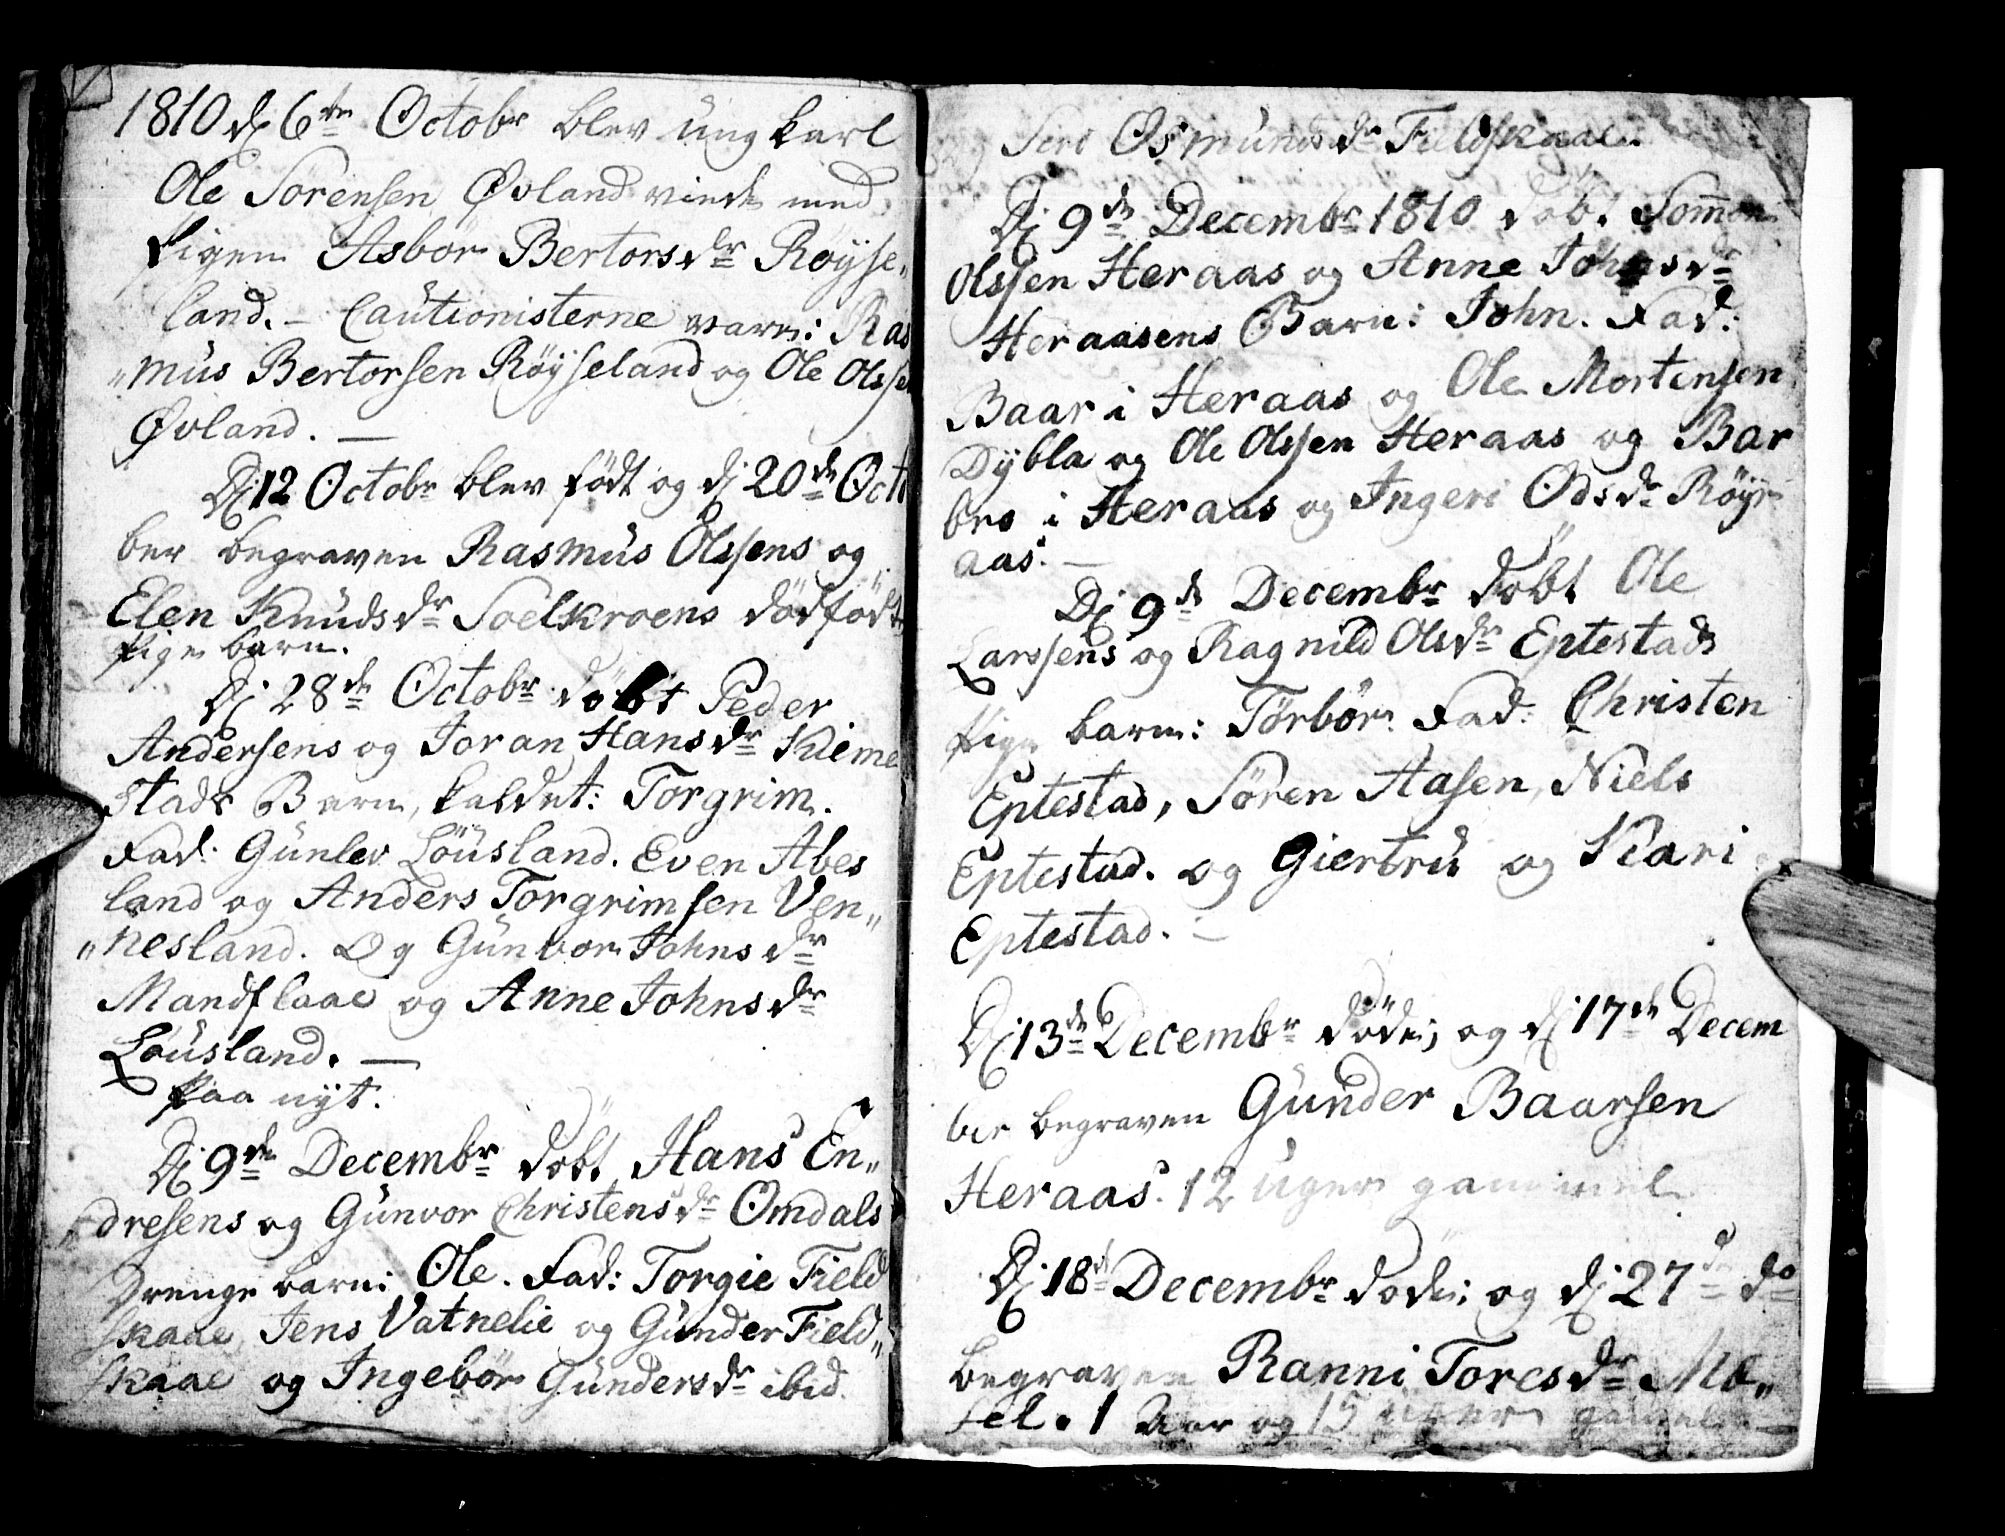 1810 dj 6te Octobr blev ung karl
Ole Sørensen Øvland viede med
Pigen Asbor Bertorsdr Røyse„
land. — Cautionisterne vare: Ras
„mus Bertorsen Røyseland og Ole Olsse
Øvland. —
Dj 12 Octobr blev født og dj 20de Octo
ber begraven Rasmus Olssens og
Elen Knudsdr Soelkroens dødfødte
Pige barn.
Dj 28de Octobr døbt Peder
Andersens og Joran Hansdr Kleme
stads Barn, kaldet: Torgrim.
Fad: Gunlev Löusland. Even Abes
land og Anders Torgrimsen Ven„
„nesland. Og Gunvor Johnsdr
Mandflaae og Anne Johnsdr
Löusland. —
Paa nyt.
Dj 9de Decembr døbt Hans En„
dresens og Gunvor Christensdr Omdals
Drenge barn: Ole. Fad: Torgie Field
skaae, Jens Vatnelie og Gunder Field„
skaae og Ingebör Gundersdr ibid.
Siri Osmundsdr Fieldskaae.
Dj 9de Decembr 1810 døbt Somon
Olssen Heraas og Anne Johnsdr
Heraasens Barn: John. Fad:
Baar i Heraas og Ole Mortensen
Dybla og Ole Olssen Heraas og Bar
bro i Heraas og Ingeri Odsdr Røyr
aas. —
Dj 9de Decembr døbt Ole
Larssens og Ragnild Olsdr Eptestads
Pige barn: Törbör. Fad: Christen
Eptestad, Sören Aasen, Niels
Eptestad. og Giertru og Kari
Eptestad. —
Dj 13de Decembr døde; og dj 17de Decem
ber begraven Gunder Baarsen
Heraas. 12 uger gammel
Dj 18de Decembr døde; og dj 27de do
begraven Ranni Toresdr Mo„
sel. 1 Aar og 15 uger gammel —